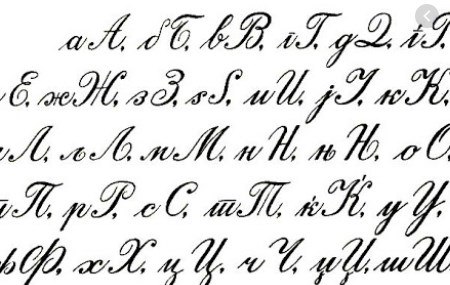 аА. бБ. вВ. гГ. дД. ѓЃ.
Е. жЖ. зЗ. ѕЅ. иИ. јЈ. кК.
лЛ. љЉ. мМ. нН. њЊ. оО.
пП. рР. сС. тТ. ќЌ. уУ.
фФ. хХ. цЦ. чЧ. џЏ. шШ